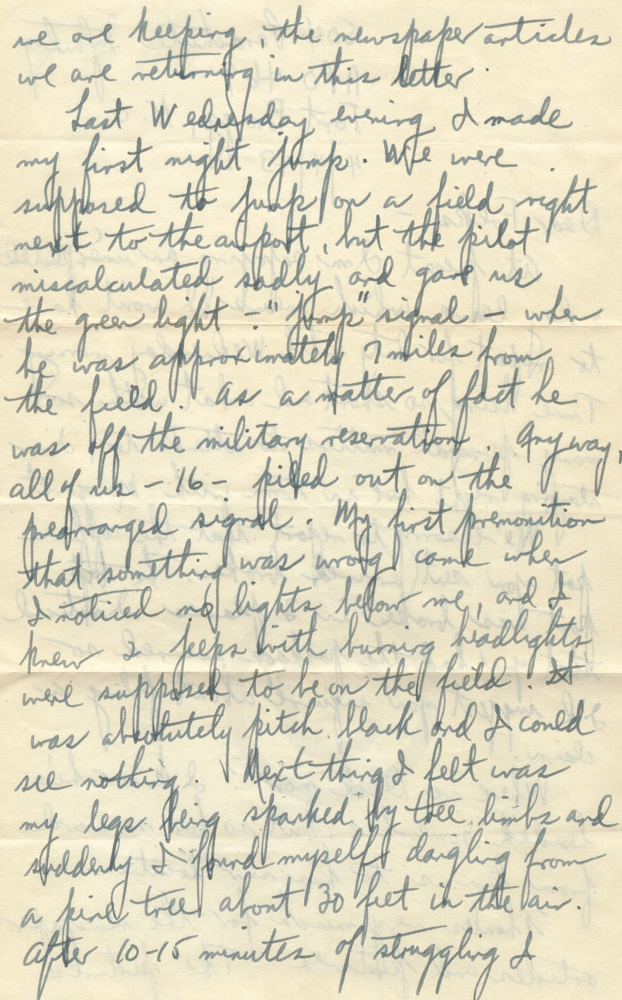 we are keeping, the newspaper articles
we are returning in this letter.
Last Wednesday evening I made
my first night jump. We were
supposed to jump on a field right
next to the airport, but the pilot
miscalculated sadly and gave us
the green light - "jump" signal - when
he was approximately 7 miles from
the field. As a matter of fact he
was off the military reservation. Anyway,
all of us - 16 - piled out on the
prearranged signal. My first premonition
that something was wrong came when
I noticed no lights below me, and I
knew 2 jeeps with burning headlights
were supposed to be on the field. It
was absolutely pitch black and I could
see nothing. Next thing I felt was
my legs being spanked by tree limbs and
suddenly I found myself dangling from
a pine tree about 30 feet in the air.
After 10-15 minutes of struggling I